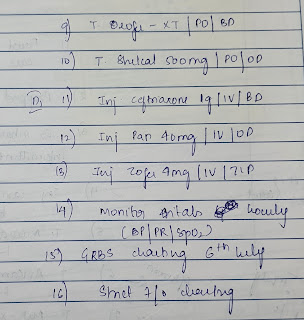 9) T. Orofer - XT | PO | BD
10) T. Shelcal 500mg | PO | OD
D1 11) Inj ceftriaxone 1g | IV | BD
12) Inj Pan 40mg | IV | OD
13) Inj Zofer 4mg | IV | TID
14) Monitor vitals hourly
(BP | PR | SpO2)
15) GRBS charting 6th hrly
16) Strict I/O charting